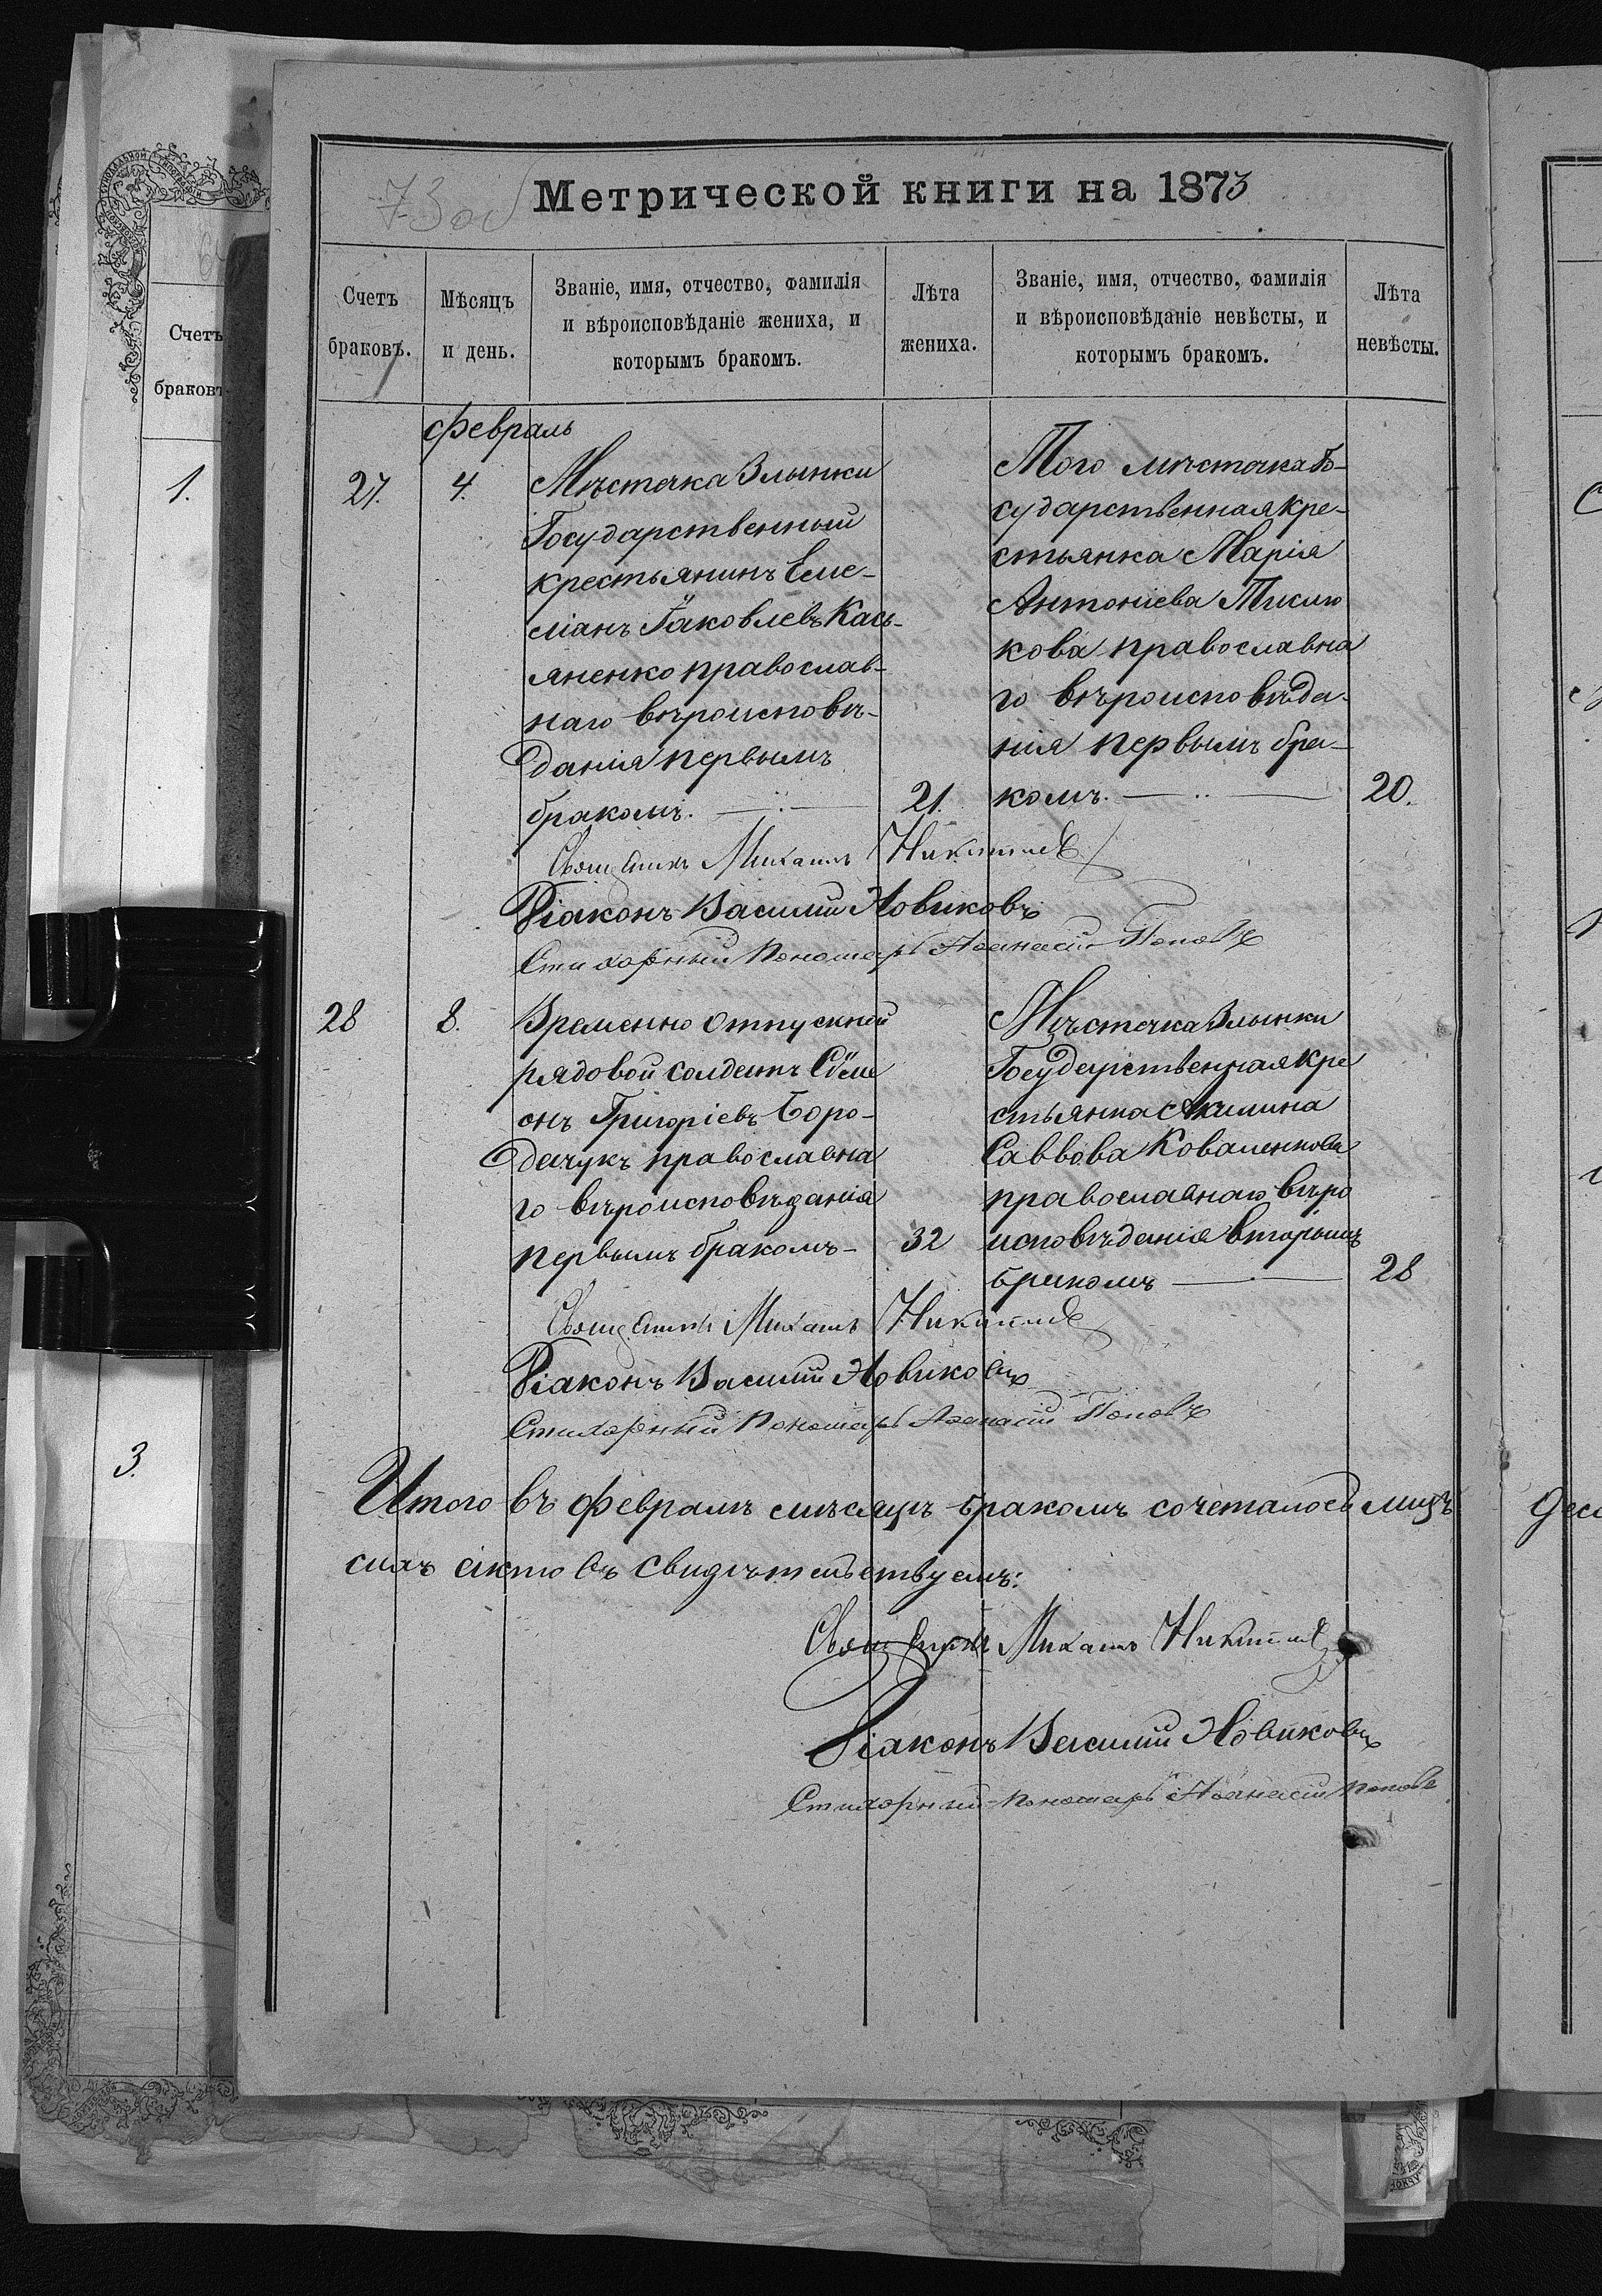 73 об
Метрической книги на 1873
Счетъ браковъ.
Мѣсяцъ и день.
Званіе, имя, отчество, фамилія
и вѣроисповѣданіе жениха, и
которымъ бракомъ.
Лѣта жениха.
Званіе, имя, отчество, фамилія
и вѣроисповѣданіе невѣсты, и
которымъ бракомъ.
Лѣта невѣсты.
Февраль
27.
4.
Мѣстечка Злынки
Государственный
крестьянинъ Еме-
ліанъ Іаковлевъ Кась-
яненко православ-
наго вѣроисповѣ-
данія первымъ
бракомъ.
21.
Того мѣстечка Го-
сударственная кре-
стьянка Марія
Антоніева
кова православна
го вѣроисповѣда-
нія первымъ бра-
комъ.
20.
Священникъ Михаилъ
Діаконъ Василій Новиковъ
Стихарный Пономарь Аѳанасій Поповъ
28
8.
Временно отпускной
рядовой солдатъ Сѷме
онъ Григоріевъ Боро-
дачукъ православна
го вѣроисповѣданія
первымъ бракомъ
32
Мѣстечка Злынки
Государственная кре
стьянка Акилина
Саввова Коваленкова
православнаго вѣро
исповѣданія вторымъ
бракомъ
28
Священникъ Михаилъ
Діаконъ Василій Новиковъ
Стихарный Пономарь Аѳанасій Поповъ
Итого въ февралѣ мѣсяцѣ бракомъ сочеталось лицъ
сихъ актовъ свидѣтельствуемъ:
Священникъ Михаилъ
Діаконъ Василій Новиковъ
Стихарный Пономарь Аѳанасій Поповъ
Счетъ
браковъ
1.
3.